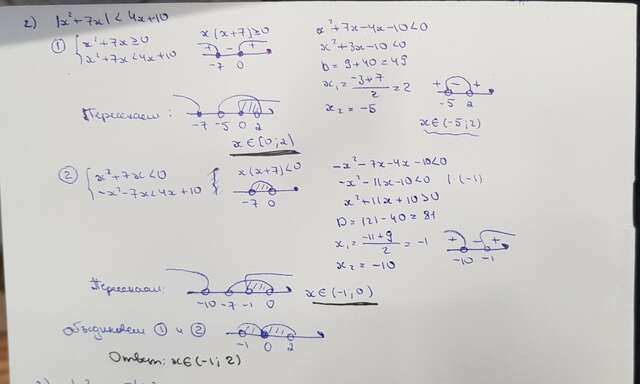 2) |x²+7x| < 4x+10
① { x²+7x ≥ 0
x²+7x < 4x+10
x(x+7) ≥ 0
+ - +
-7 0
x²+7x-4x-10<0
x²+3x-10<0
D = 9+40 = 49
x₁ = (-3+7)/2 = 2
x₂ = -5
+ - +
-5 2
x∈(-5;2)
Пересекаем:
-7 -5 0 2
x∈[0;2)
② { x²+7x<0
-x²-7x<4x+10
x(x+7)<0
-7 0
-x²-7x-4x-10<0
-x²-11x-10<0 |·(-1)
x²+11x+10>0
D = 121-40 = 81
x₁ = (-11+9)/2 = -1
x₂ = -10
+ - +
-10 -1
Пересекаем:
-10 -7 -1 0
x∈(-1;0)
Объединяем ① и ②
-1 0 2
Ответ: x∈(-1;2)